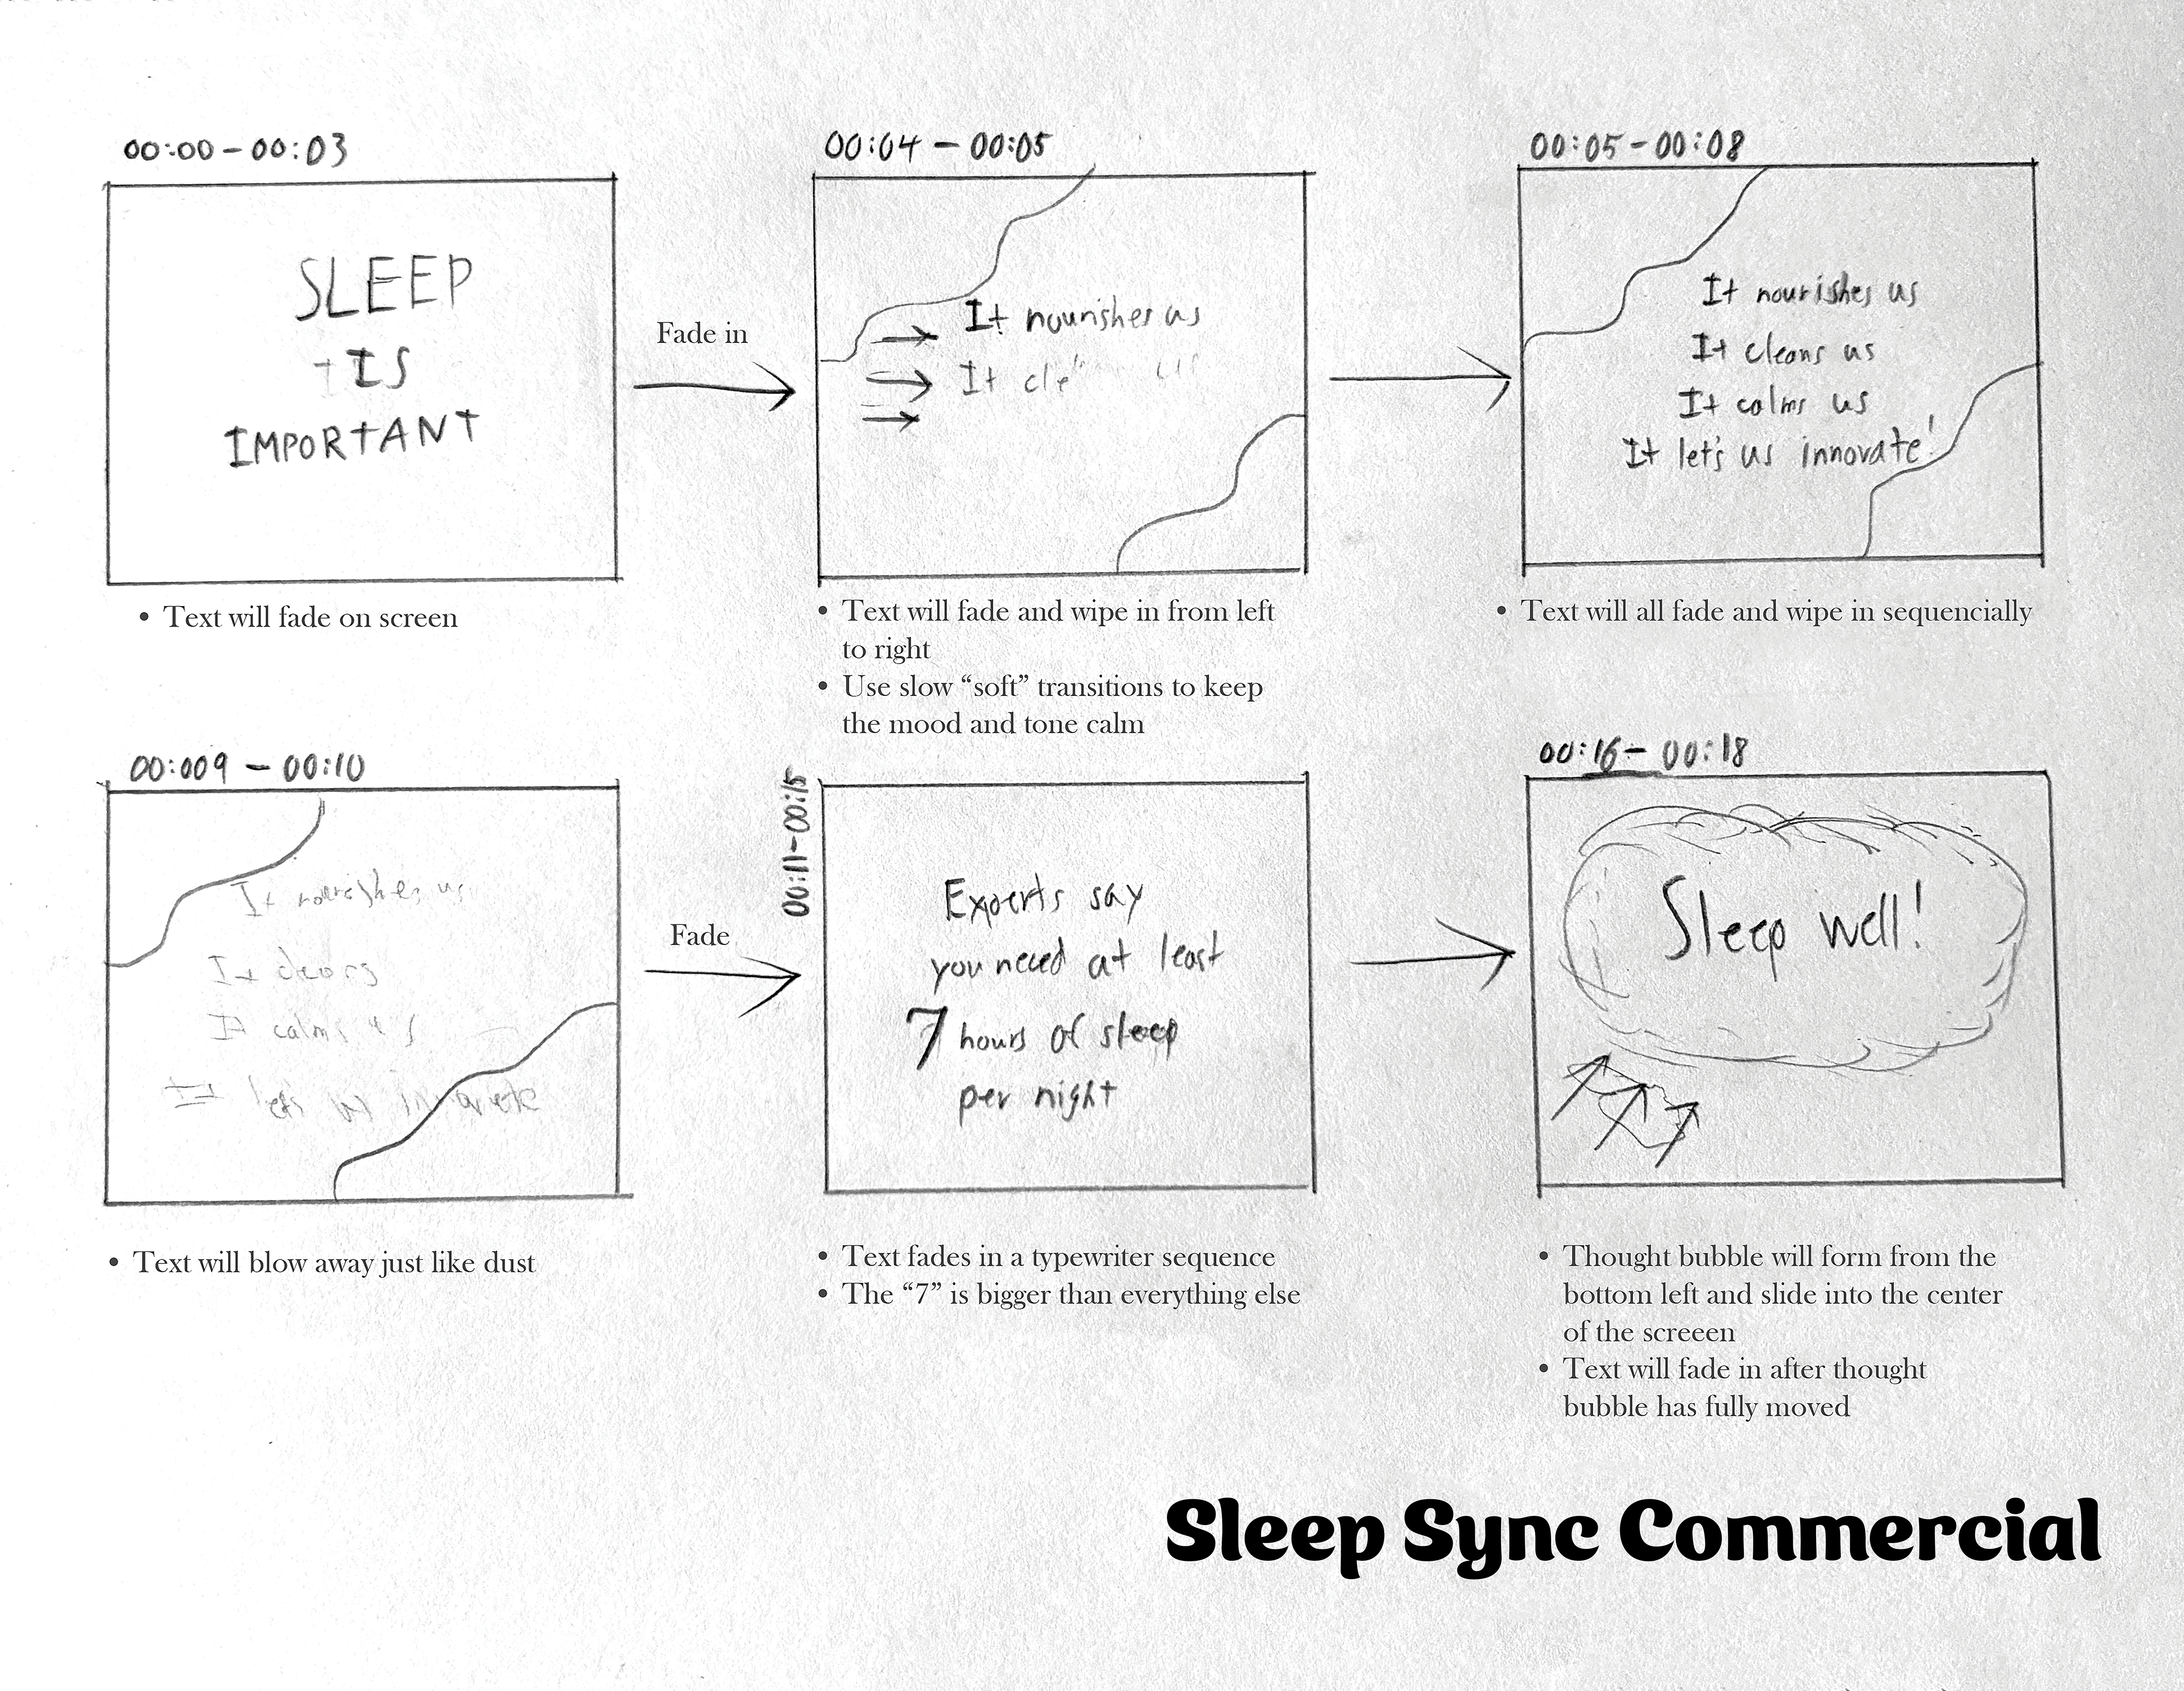 00:00 - 00:03
SLEEP
IS
IMPORTANT
• Text will fade on screen
Fade in
00:04 - 00:05
It nourishes us
It cle
• Text will fade and wipe in from left
to right
• Use slow “soft” transitions to keep
the mood and tone calm
00:05 - 00:08
It nourishes us
It cleans us
It calms us
It let's us innovate!
• Text will all fade and wipe in sequencially
00:009 - 00:10
It nourishes us
It cleans
It calms us
It let's us innovate
• Text will blow away just like dust
Fade
00:11-00:15
Experts say
you need at least
7 hours of sleep
per night
• Text fades in a typewriter sequence
• The “7” is bigger than everything else
00:16 - 00:18
Sleep well!
• Thought bubble will form from the
bottom left and slide into the center
of the screeen
• Text will fade in after thought
bubble has fully moved
Sleep Sync Commercial